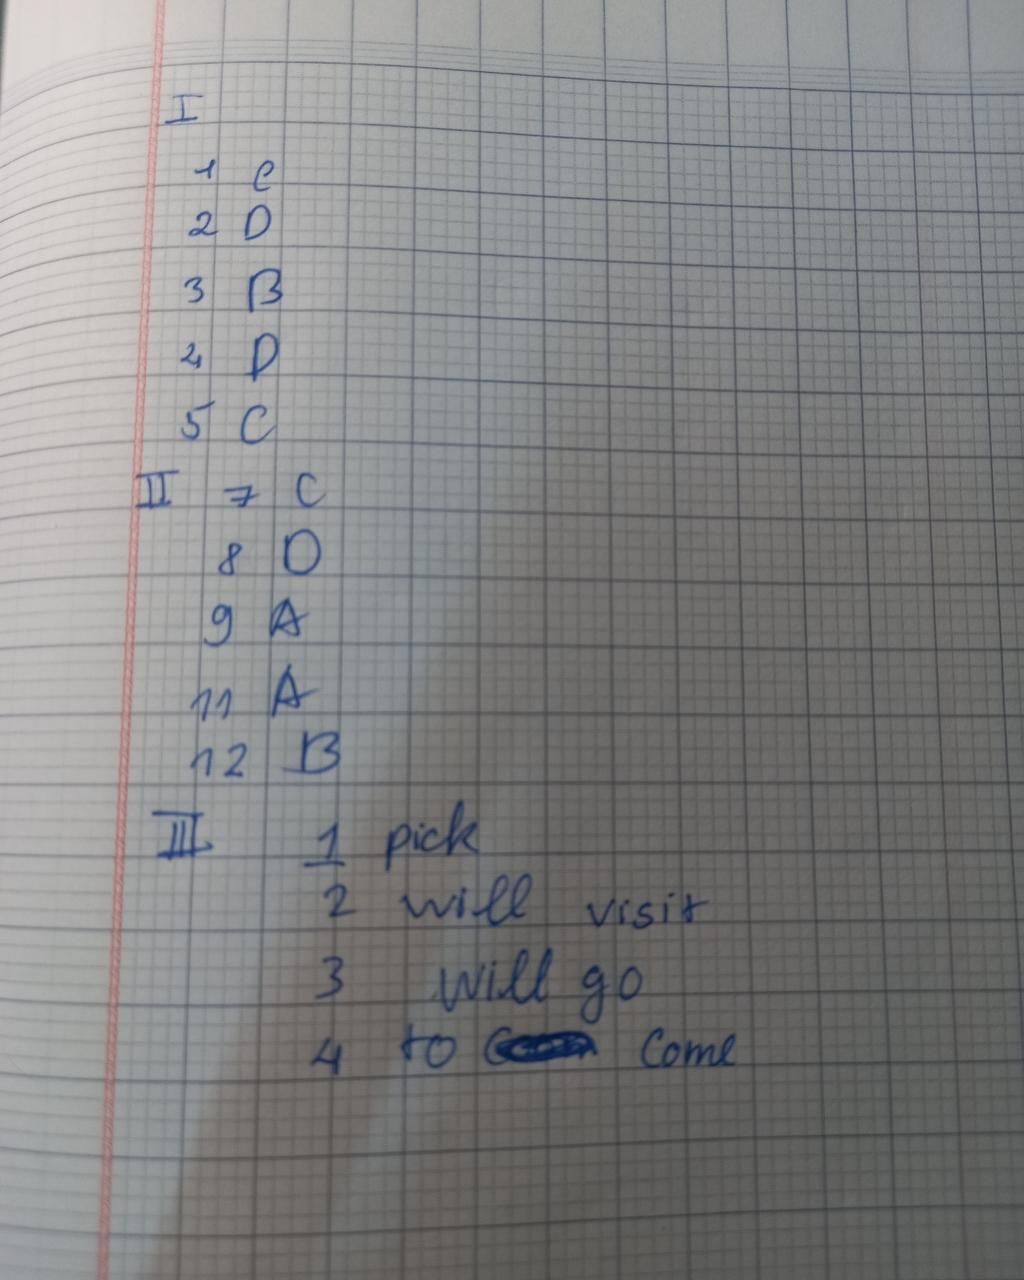 I
1 C
2 D
3 B
4 D
5 C
II 7 C
8 D
9 A
11 A
12 B
III 1 pick
2 will visit
3 will go
4 to come